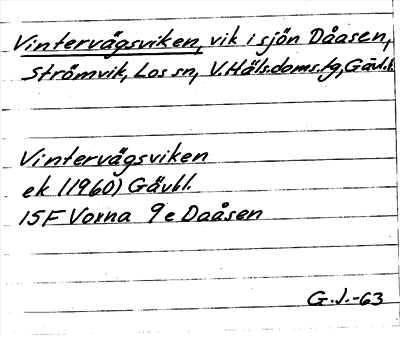 Vintervägsviken, vik i sjön Dåasen,
Strömvik, Los sn, V.Häls.doms.tg, Gävl.l.
Vintervägsviken
ek (1960) Gävl.l.
15F Voxna 9e Daåsen
G.J.-63